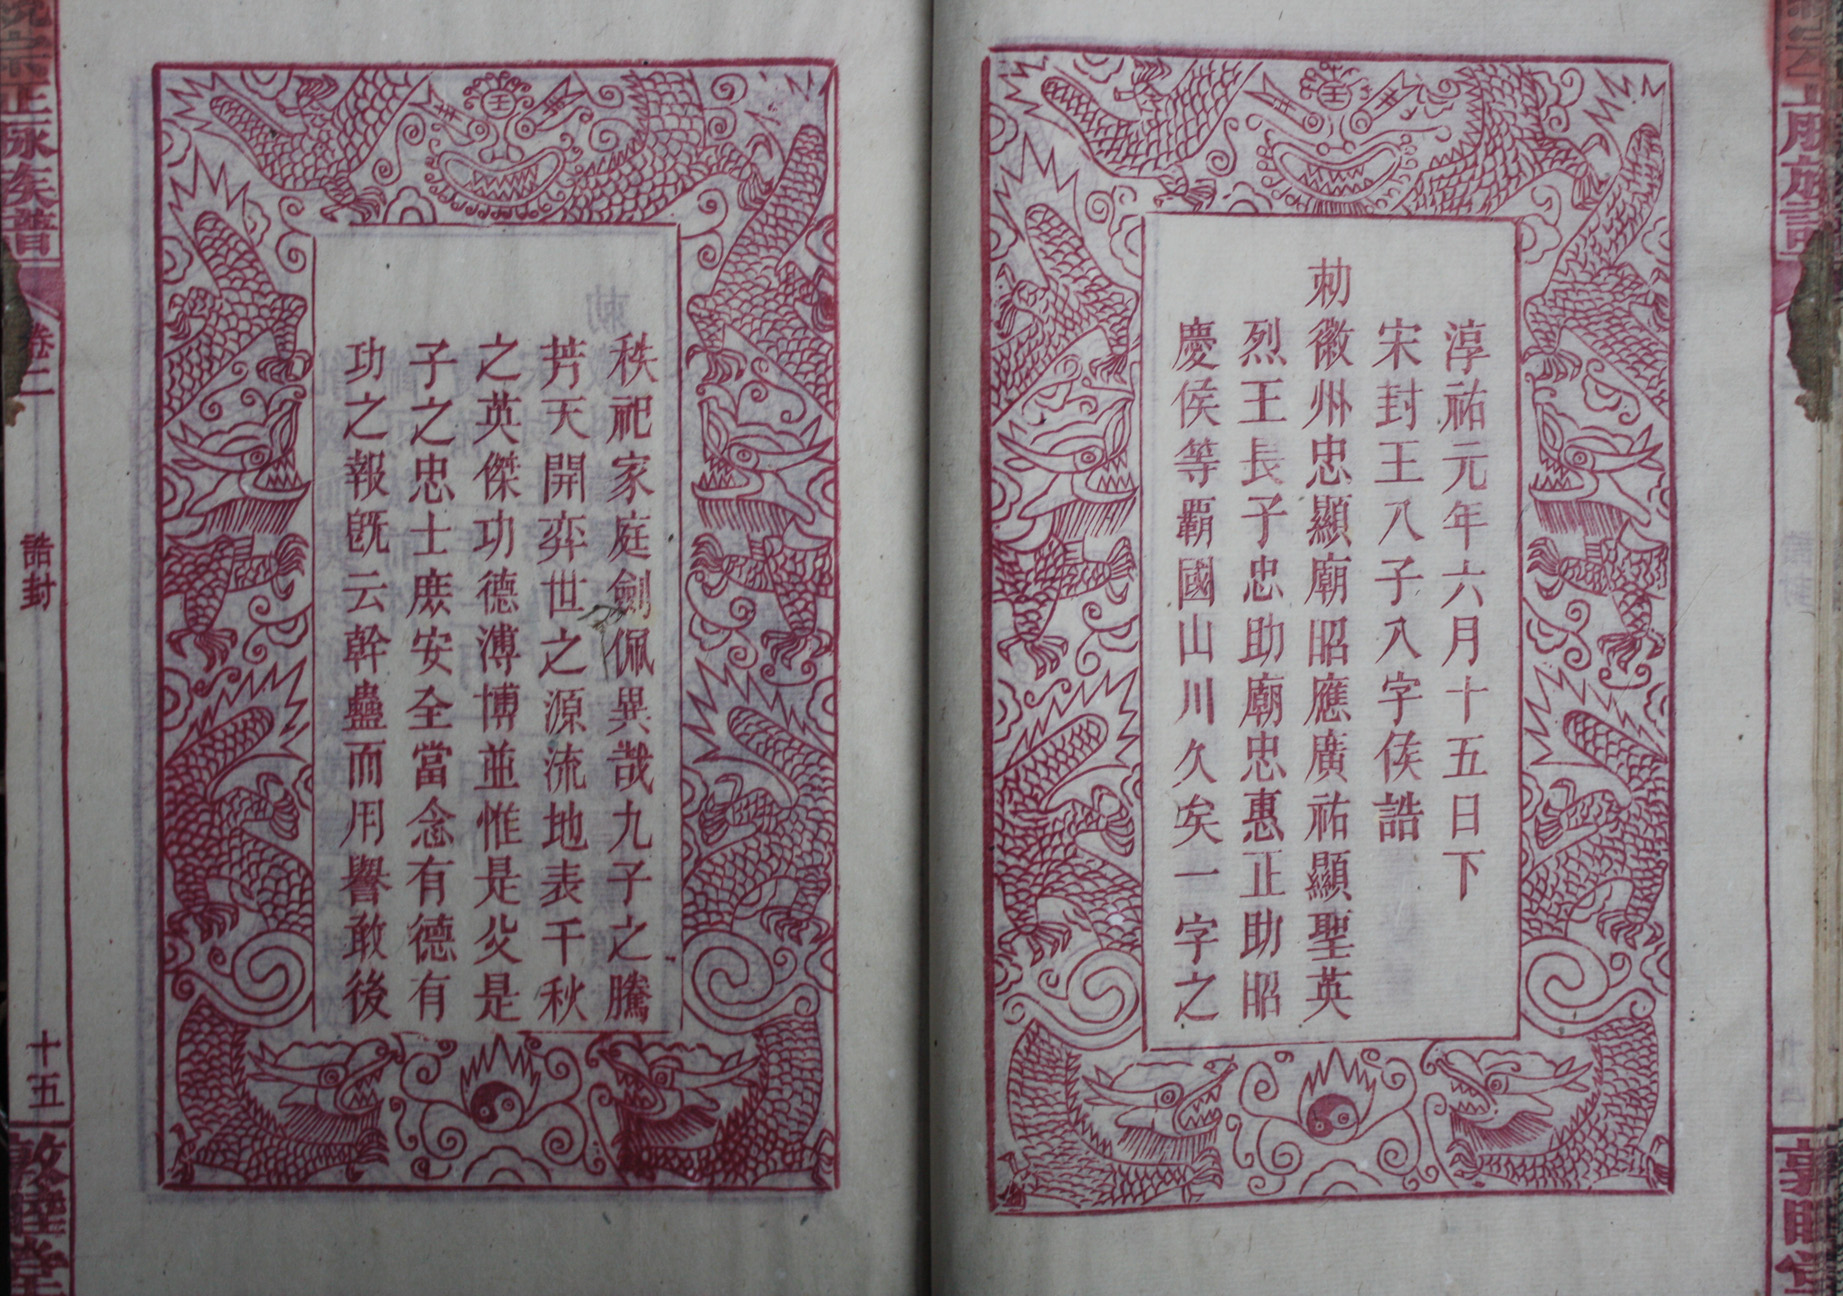 淳祐元年六月十五日下
宋封王八子八字侯誥
勅徽州忠顯廟昭應廣祐顯聖英
烈王長子忠助廟忠惠正助昭
慶侯等覇國山川久矣一字之
秩祀家庭劍佩異哉九子之騰
芳天開弈世之源流地表千秋
之英傑功德溥博並惟是父是
子之忠士庶安全當念有德有
功之報旣云幹蠱而用譽敢後
正脉族譜
卷二
誥封
十五
敦睦堂